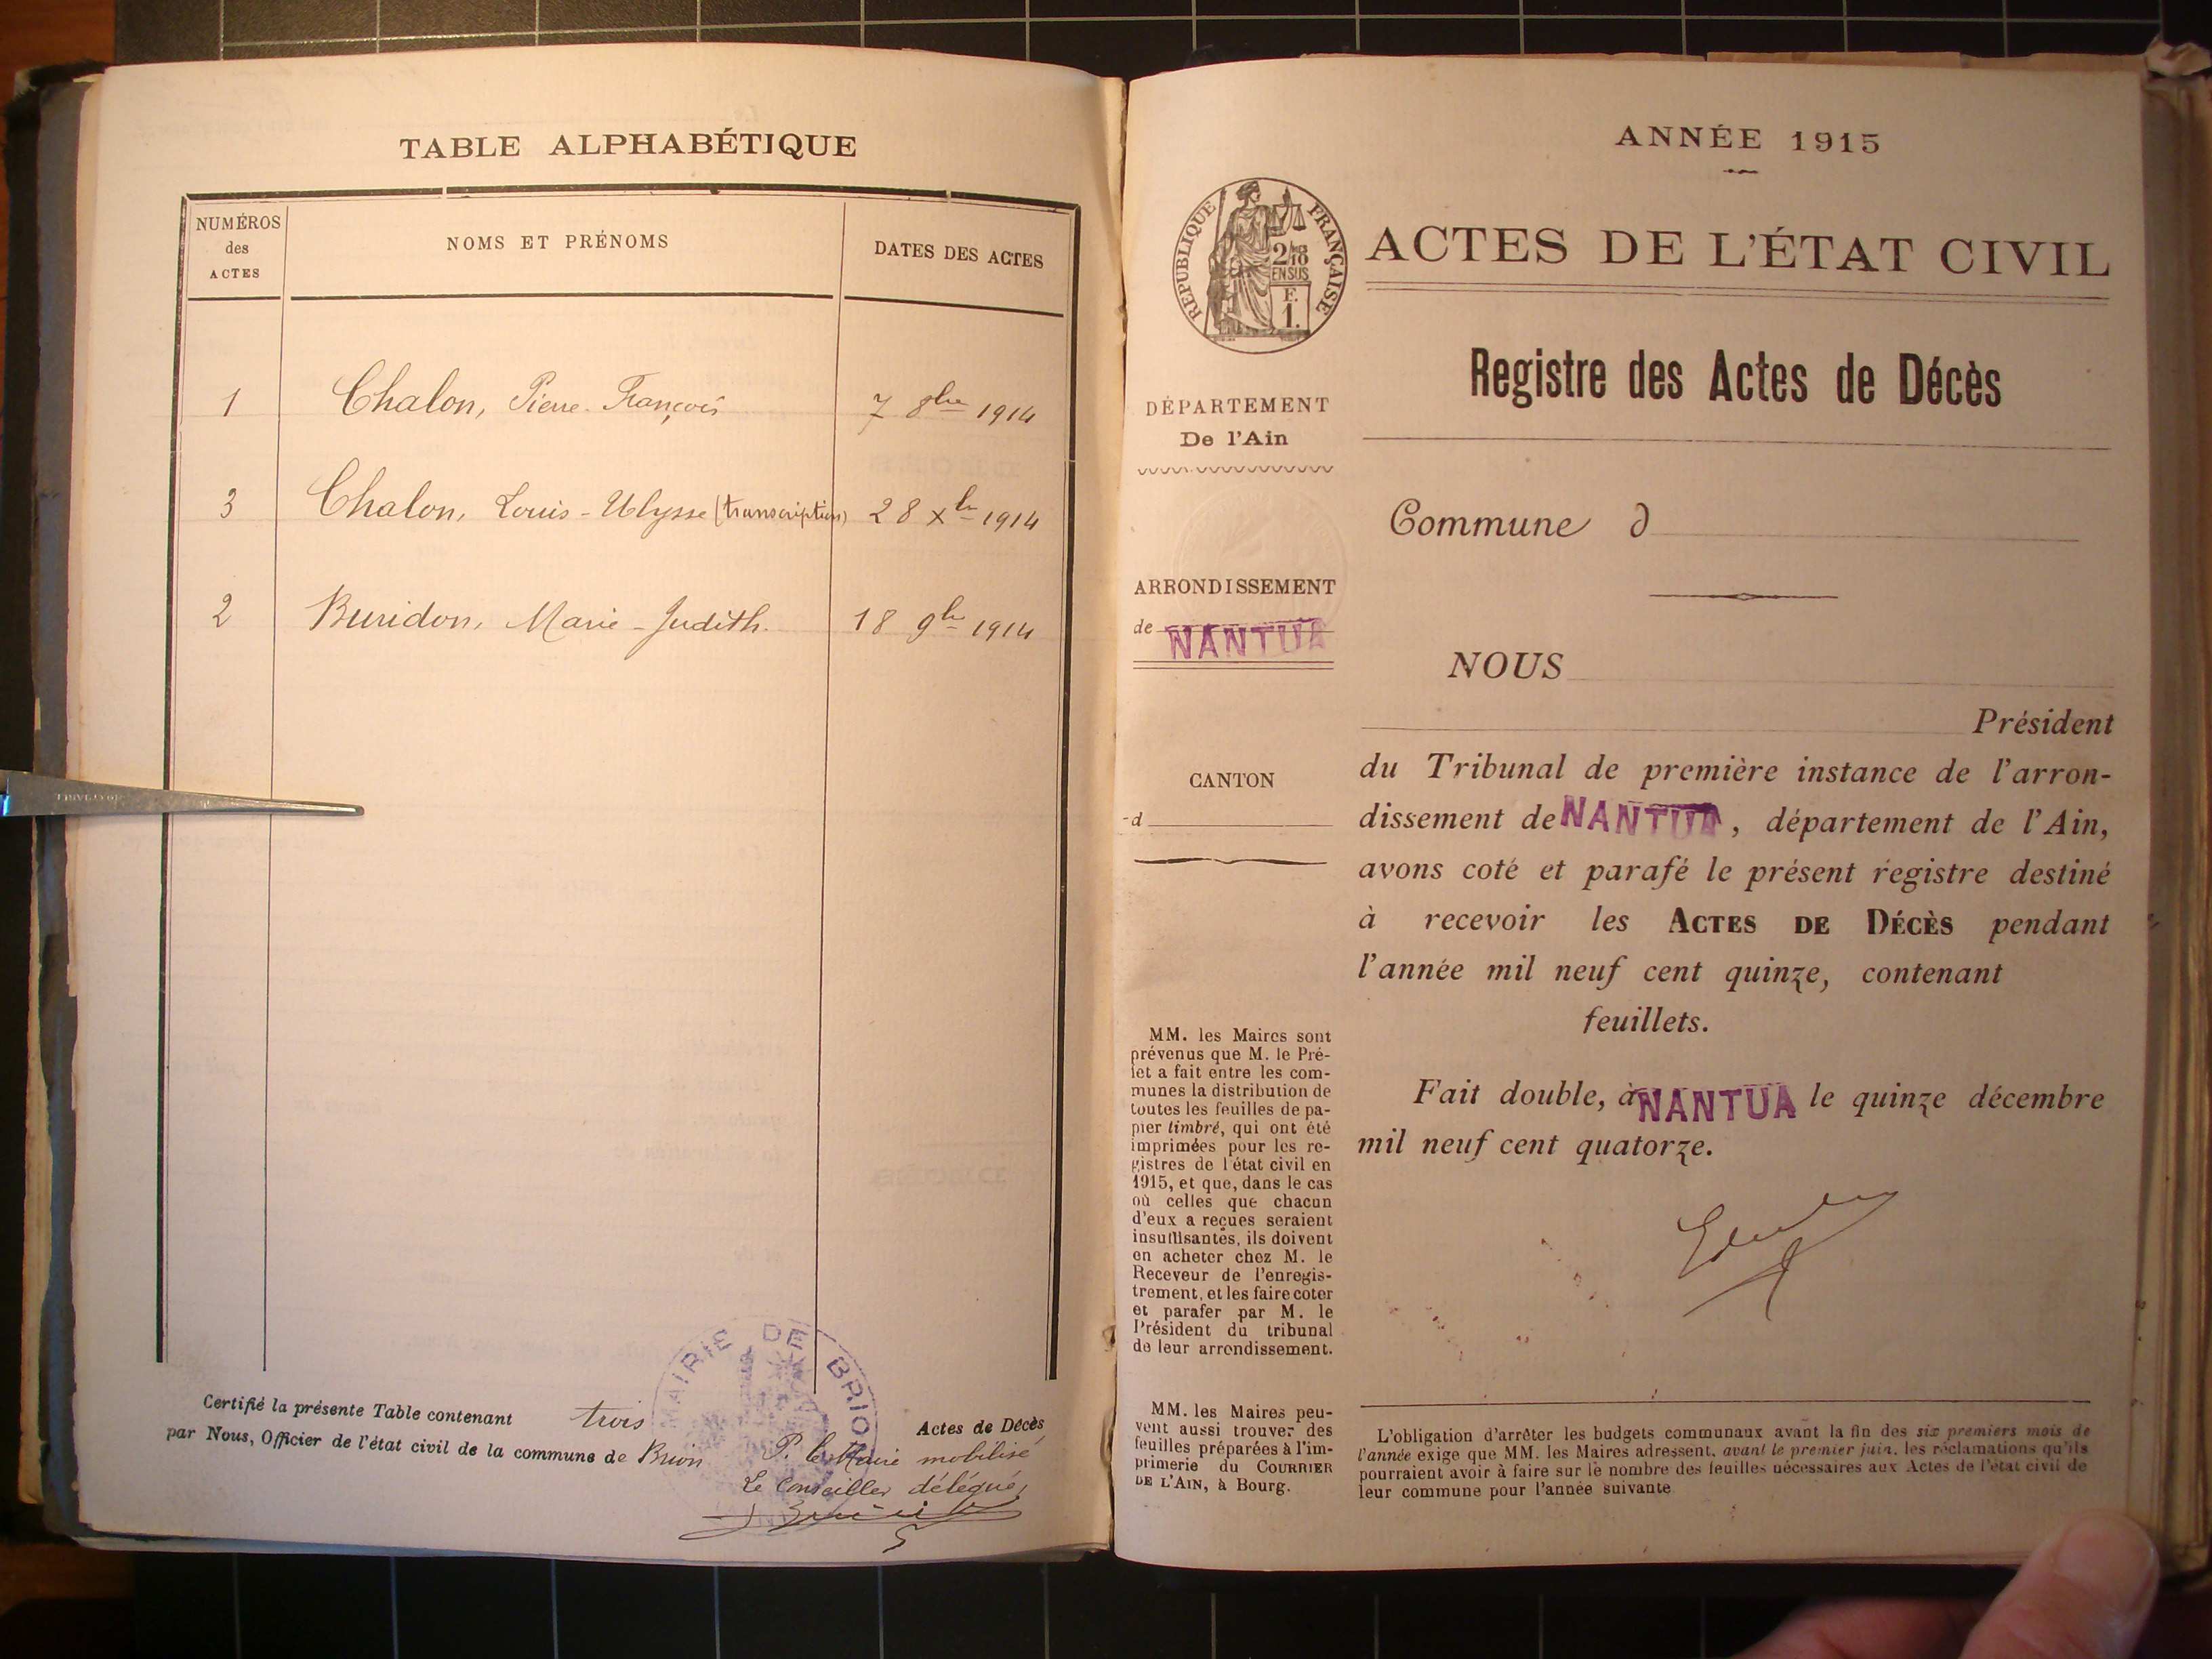 TABLE ALPHABÉTIQUE
NUMÉROS
des
ACTES
NOMS ET PRÉNOMS
DATES DES ACTES
1 Chalon, Pierre-François 7 8bre 1914
3 Chalon, Louis-Ulysse (transcription) 28 Xbre 1914
2 Buridon, Marie-Judith. 18 9bre 1914
Certifié la présente Table contenant trois Actes de Décès
par Nous, Officier de l'état civil de la commune de Brion
P. le Maire mobilisé
Le Conseiller délégué,
MAIRIE DE BRION
ANNÉE 1915
RÉPUBLIQUE FRANÇAISE
2/10
EN SUS
F.
1.
ACTES DE L'ÉTAT CIVIL
Registre des Actes de Décès
DÉPARTEMENT
De l'Ain
Commune d
ARRONDISSEMENT
de NANTUA
CANTON
d
NOUS
Président
du Tribunal de première instance de l'arron-
dissement de NANTUA, département de l'Ain,
avons coté et parafé le présent registre destiné
à recevoir les ACTES DE DÉCÈS pendant
l'année mil neuf cent quinze, contenant
feuillets.
Fait double, à NANTUA le quinze décembre
mil neuf cent quatorze.
MM. les Maires sont
prévenus que M. le Pré-
fet a fait entre les com-
munes la distribution de
toutes les feuilles de pa-
pier timbré, qui ont été
imprimées pour les re-
gistres de l'état civil en
1915, et que, dans le cas
où celles que chacun
d'eux a reçues seraient
insuffisantes, ils doivent
en acheter chez M. le
Receveur de l'enregis-
trement, et les faire coter
et parafer par M. le
Président du tribunal
de leur arrondissement.
MM. les Maires peu-
vent aussi trouver des
feuilles préparées à l'im-
primerie du COURRIER
DE L'AIN, à Bourg.
L'obligation d'arrêter les budgets communaux avant la fin des six premiers mois de
l'année exige que MM. les Maires adressent, avant le premier juin, les réclamations qu'ils
pourraient avoir à faire sur le nombre des feuilles nécessaires aux Actes de l'état civil de
leur commune pour l'année suivante